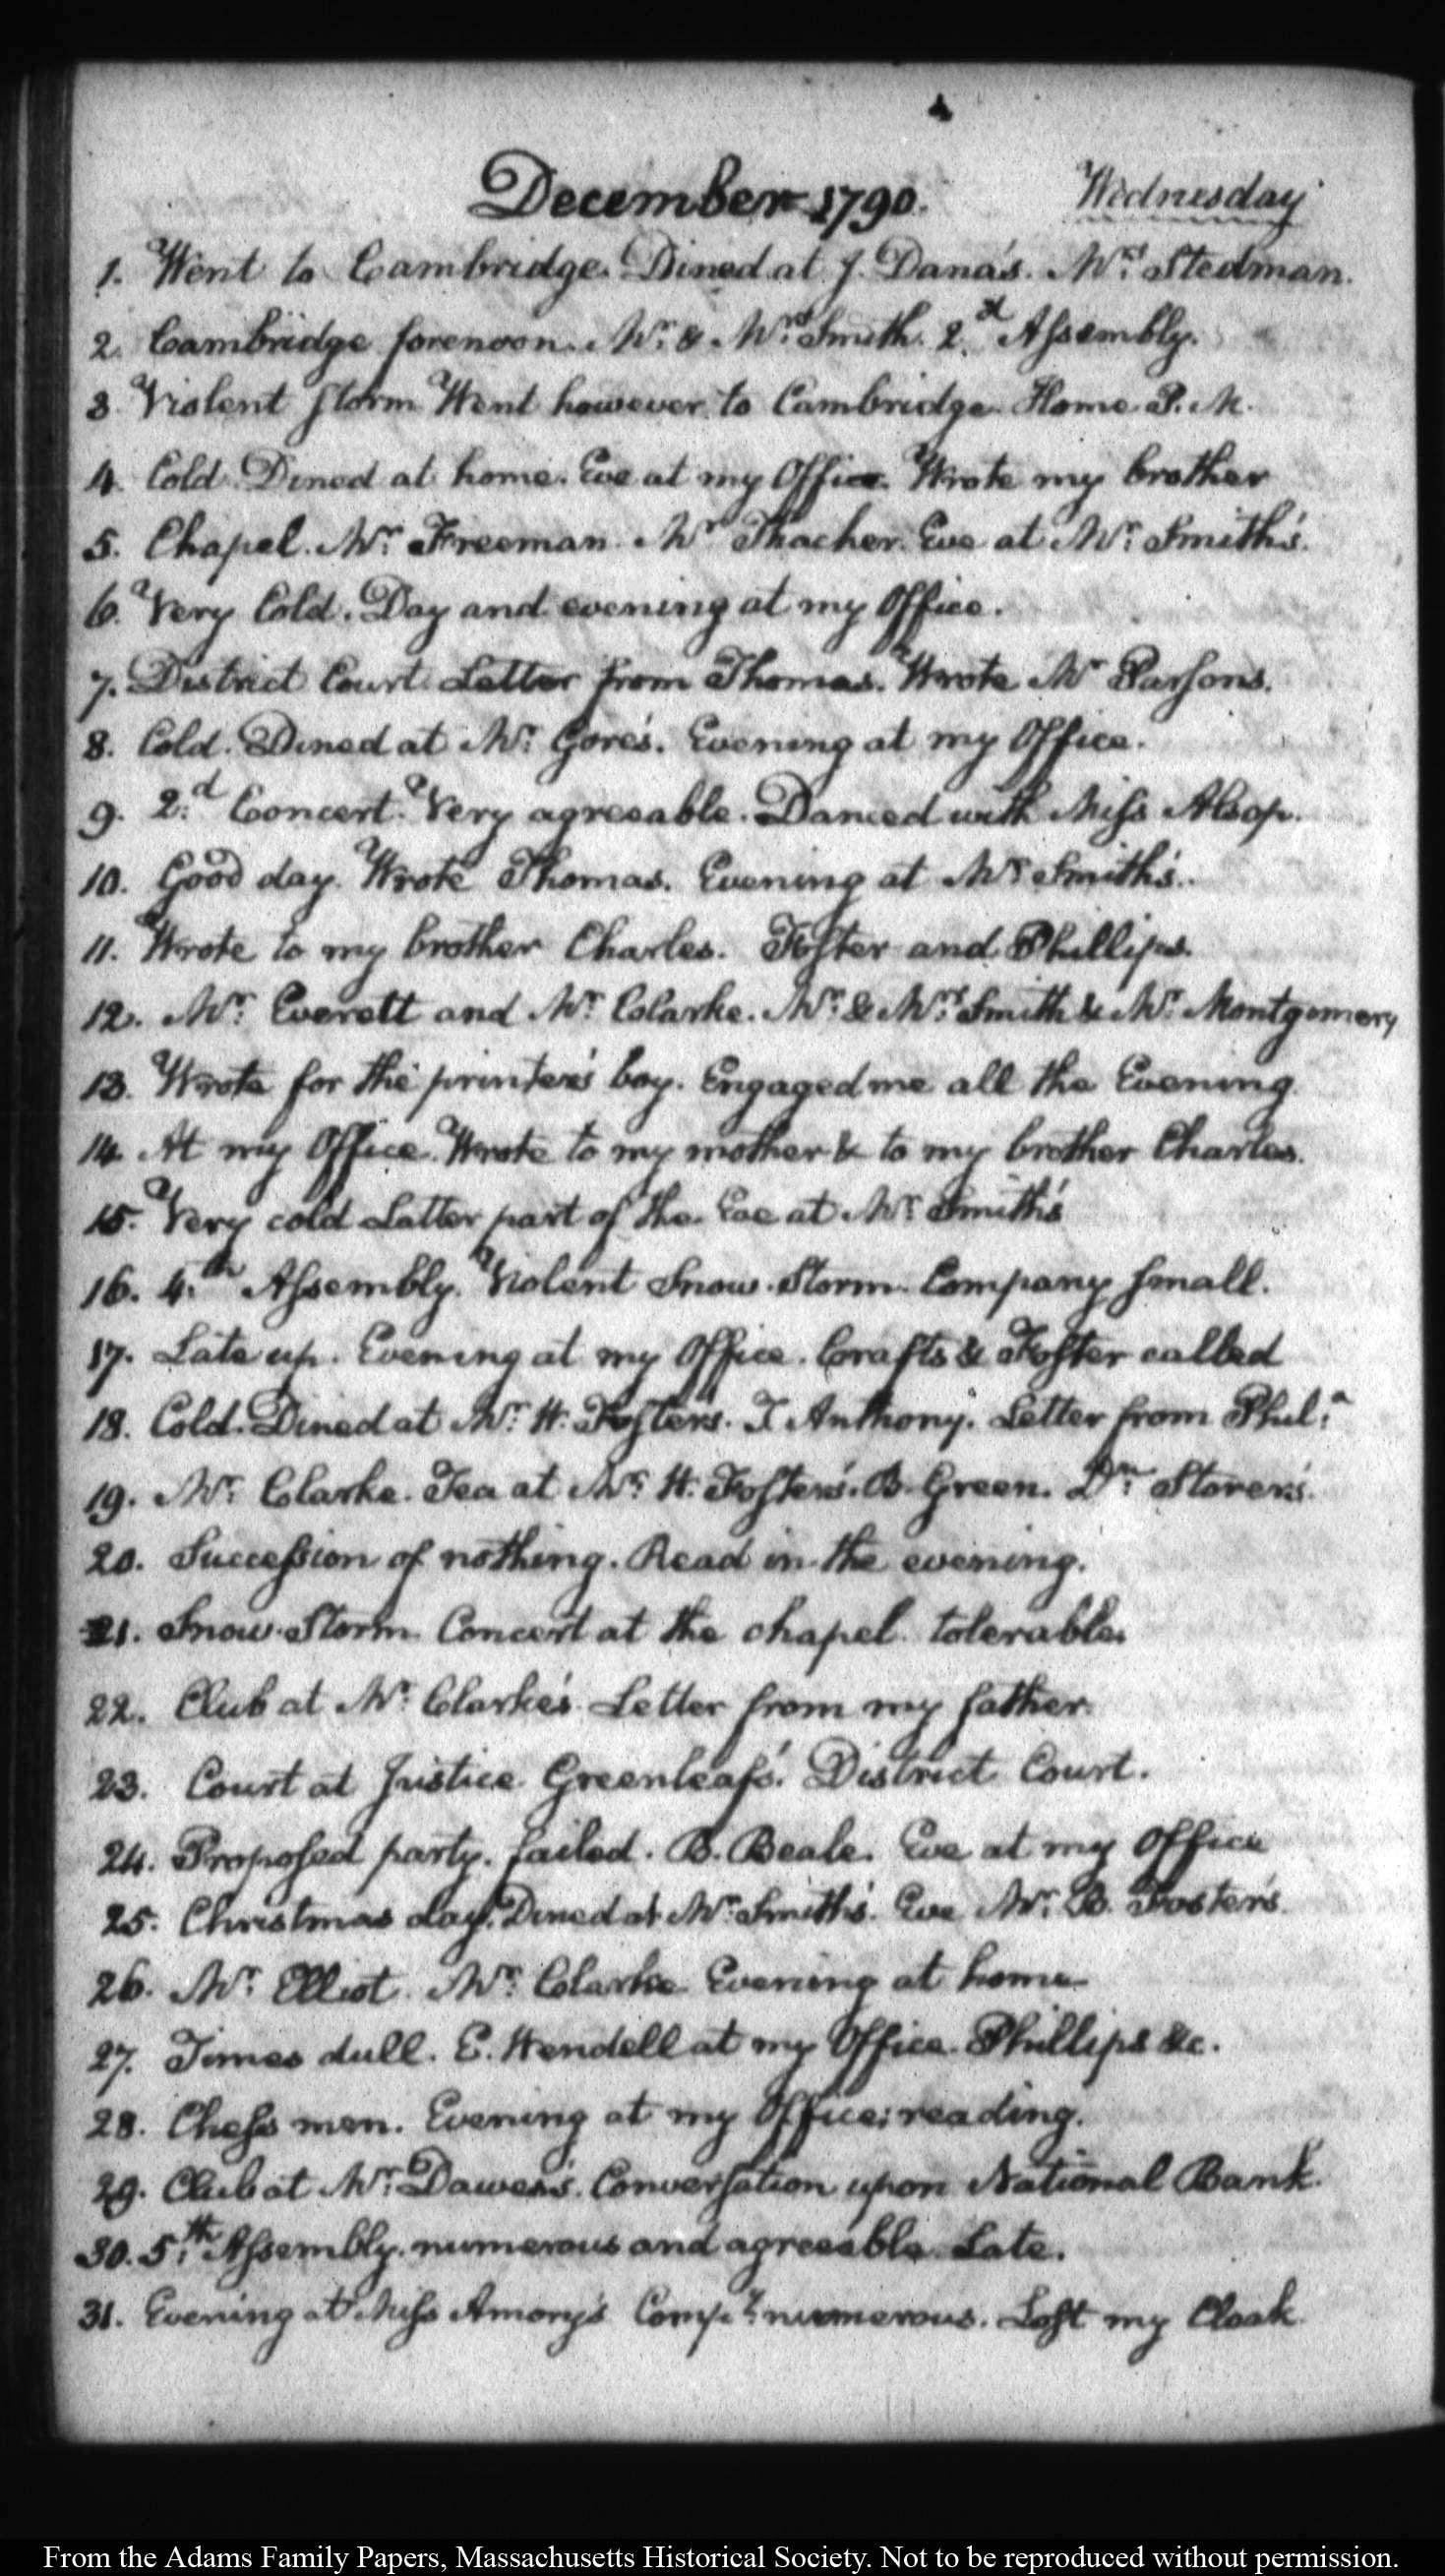 December 1790. Wednesday
1. Went to Cambridge. Dined at J. Dana's. Mrs. Stedman.
2. Cambridge forenoon. Mr. & Mrs. Smith. 2.d Assembly.
3 Violent storm Went however to Cambridge. Home P.M.
4. Cold. Dined at home. Eve at my Office. Wrote my brother
5. Chapel. Mr. Freeman. Mr Thacher. Eve at Mr. Smith's.
6. Very Cold. Day and evening at my Office.
7. District Court. Letter from Thomas. Wrote Mr Parsons.
8. Cold. Dined at Mr. Gore's. Evening at my Office.
9. 2.d Concert. Very agreeable. Danced with Miss Alsop.
10. Good day. Wrote Thomas. Evening at Mr. Smith's.
11. Wrote to my brother Charles. Foster and Phillips.
12. Mr. Everett and Mr. Clarke. Mr. & Mrs. Smith & Mr. Montgomery
13. Wrote for the printer's boy. Engaged me all the Evening.
14. At my Office. Wrote to my mother & to my brother Charles.
15. Very cold Latter part of the Eve at Mr. Smith's
16. 4.th Assembly. Violent Snow-Storm. Company small.
17. Late up. Evening at my Office. Crafts & Foster called
18. Cold. Dined at Mr. H. Foster's. J. Anthony. Letter from Phil.a
19. Mr. Clarke. Tea at Mr. H. Foster's. B. Green. Dr. Storer's.
20. Succession of nothing. Read in the evening.
21. Snow-Storm. Concert at the chapel tolerable.
22. Club at Mr. Clarke's. Letter from my father.
23. Court at Justice Greenleaf's. District Court.
24. Proposed party. failed. B. Beale. Eve at my Office
25. Christmas day. Dined at Mr. Smith's. Eve Mr. B. Foster's.
26. Mr. Elliot. Mr. Clarke. Evening at home.
27. Times dull. E. Wendell at my Office. Phillips &c.
28. Chess men. Evening at my Office; reading.
29. Club at Mr. Dawes's. Conversation upon National Bank.
30. 5.th Assembly. numerous and agreeable. Late.
31. Evening at Miss Amory's Comp.y numerous. Lost my Cloak
From the Adams Family Papers, Massachusetts Historical Society. Not to be reproduced without permission.